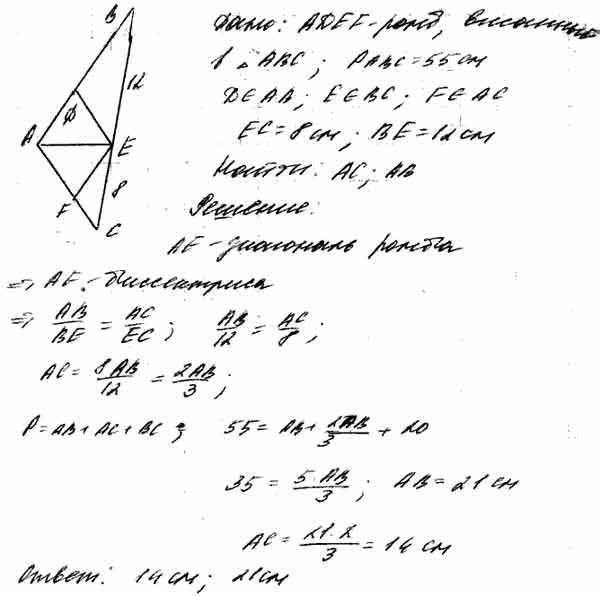 Дано: ADEF - ромб, вписанный
в △ ABC; P ABC = 55 см
D∈AB; E∈BC; F∈AC
EC = 8 см; BE = 12 см
Найти: AC; AB
Решение:
AE - диагональ ромба
⇒ AE - биссектриса
⇒ AB/BE = AC/EC; AB/12 = AC/8;
AC = 8AB/12 = 2AB/3;
P = AB + AC + BC; 55 = AB + 2AB/3 + 20
35 = 5·AB/3; AB = 21 см
AC = 21·2/3 = 14 см
Ответ: 14 см; 21 см
B
12
D
A
E
8
F
C